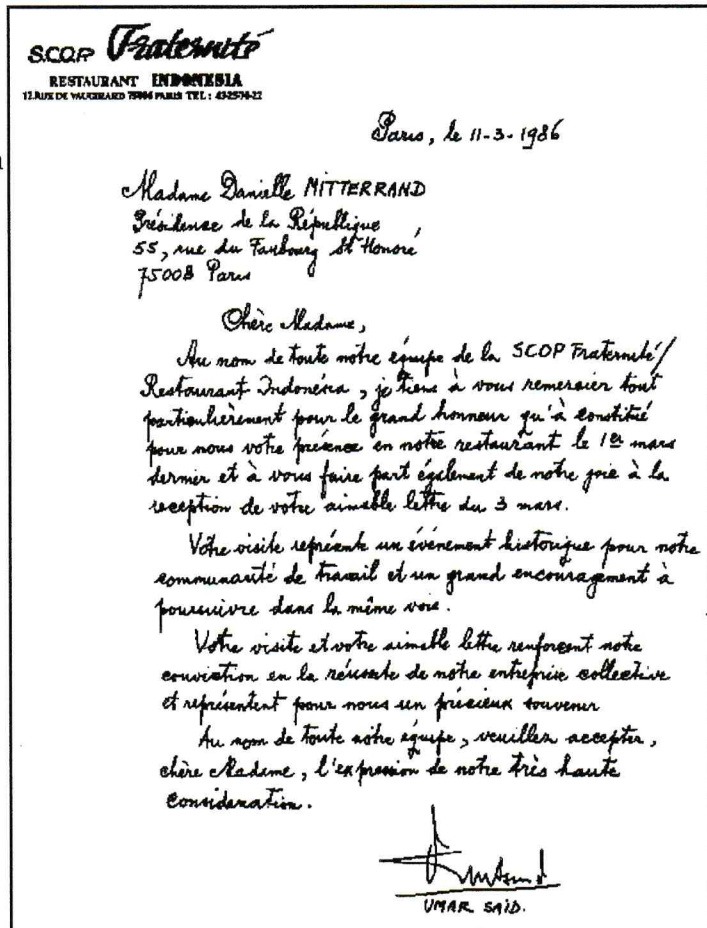 S.C.O.P Fraternité
RESTAURANT INDONESIA
12.RUE DE VAUGIRARD 75006 PARIS TEL :
Paris, le 11-3-1986
Madame Danielle MITTERRAND
Présidence de la République
55, rue du Faubourg St Honoré
75008 Paris
Chère Madame,
Au nom de toute notre équipe de la SCOP Fraternité/
Restaurant Indonésia, je tiens à vous remercier tout
particulièrement pour le grand honneur qu'à constitué
pour nous votre présence en notre restaurant le 1er mars
dernier et à vous faire part également de notre joie à la
reception de votre aimable lettre du 3 mars.
Votre visite représente un événement historique pour notre
communauté de travail et un grand encouragement à
poursuivre dans la même voie.
Votre visite et votre aimable lettre renforcent notre
conviction en la réussite de notre entreprise collective
et représentent pour nous un précieux souvenir
Au nom de toute notre équipe, veuillez accepter,
chère Madame, l'expression de notre très haute
consideration.
UMAR SAÏD.